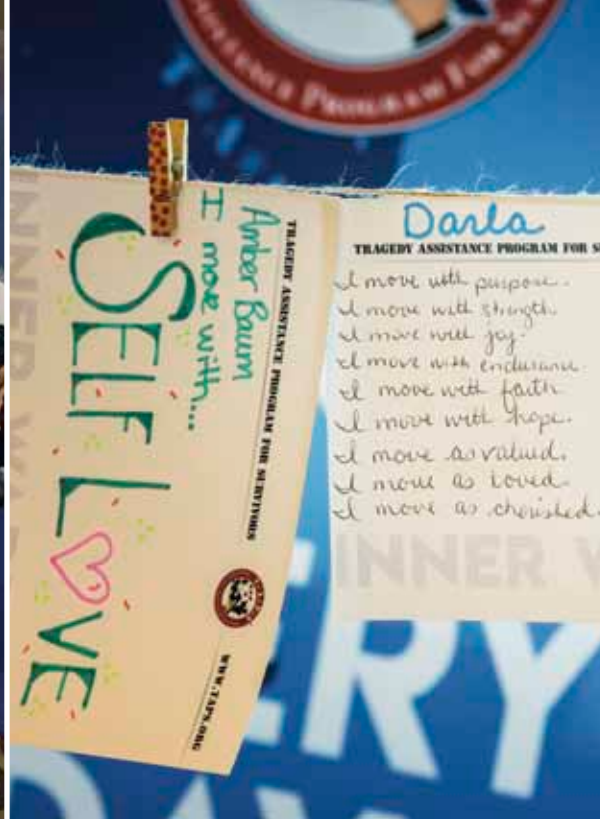 ASSISTANCE PROGRAM FOR SU
TRAGEDY ASSISTANCE PROGRAM FOR SURVIVORS
WWW.TAPS.ORG
Amber Baum
I move with...
SELF LOVE
INNER W
Darla
TRAGEDY ASSISTANCE PROGRAM FOR S
I move with purpose.
I move with strength.
I move with joy.
I move with endurance.
I move with faith
I move with hope.
I move as valued.
I move as loved.
I move as cherished.
INNER W
ERY
DAY